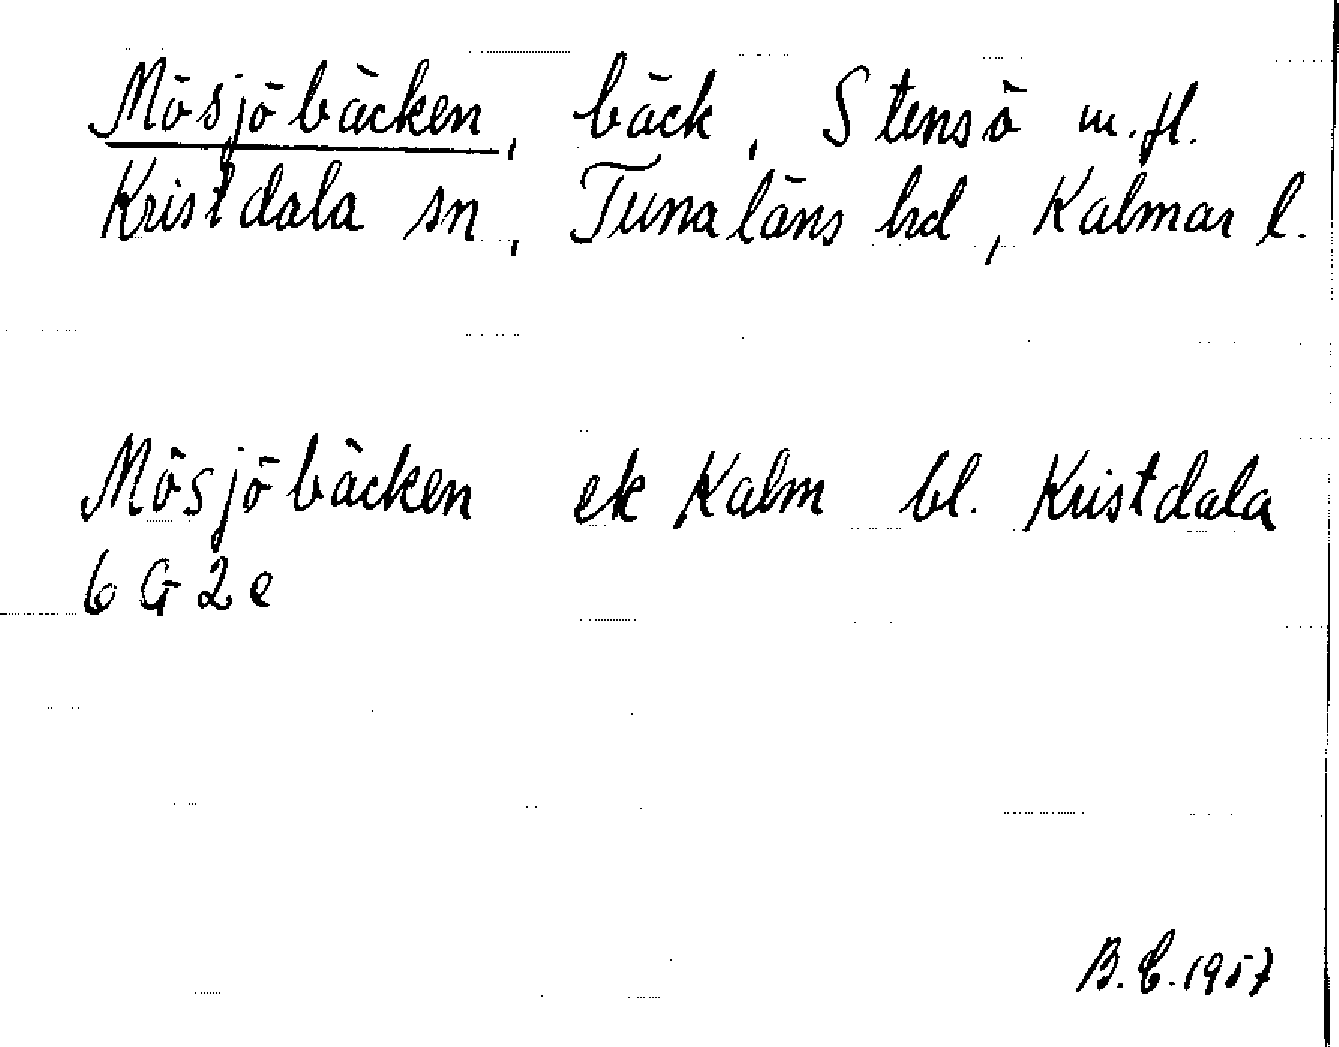 Mösjöbäcken, bäck, Stensö m.fl.
Kristdala sn, Tunaläns hd, Kalmar l.
Mösjöbäcken ek Kalm bl. Kristdala
6 G 2 e
B.E. 1957